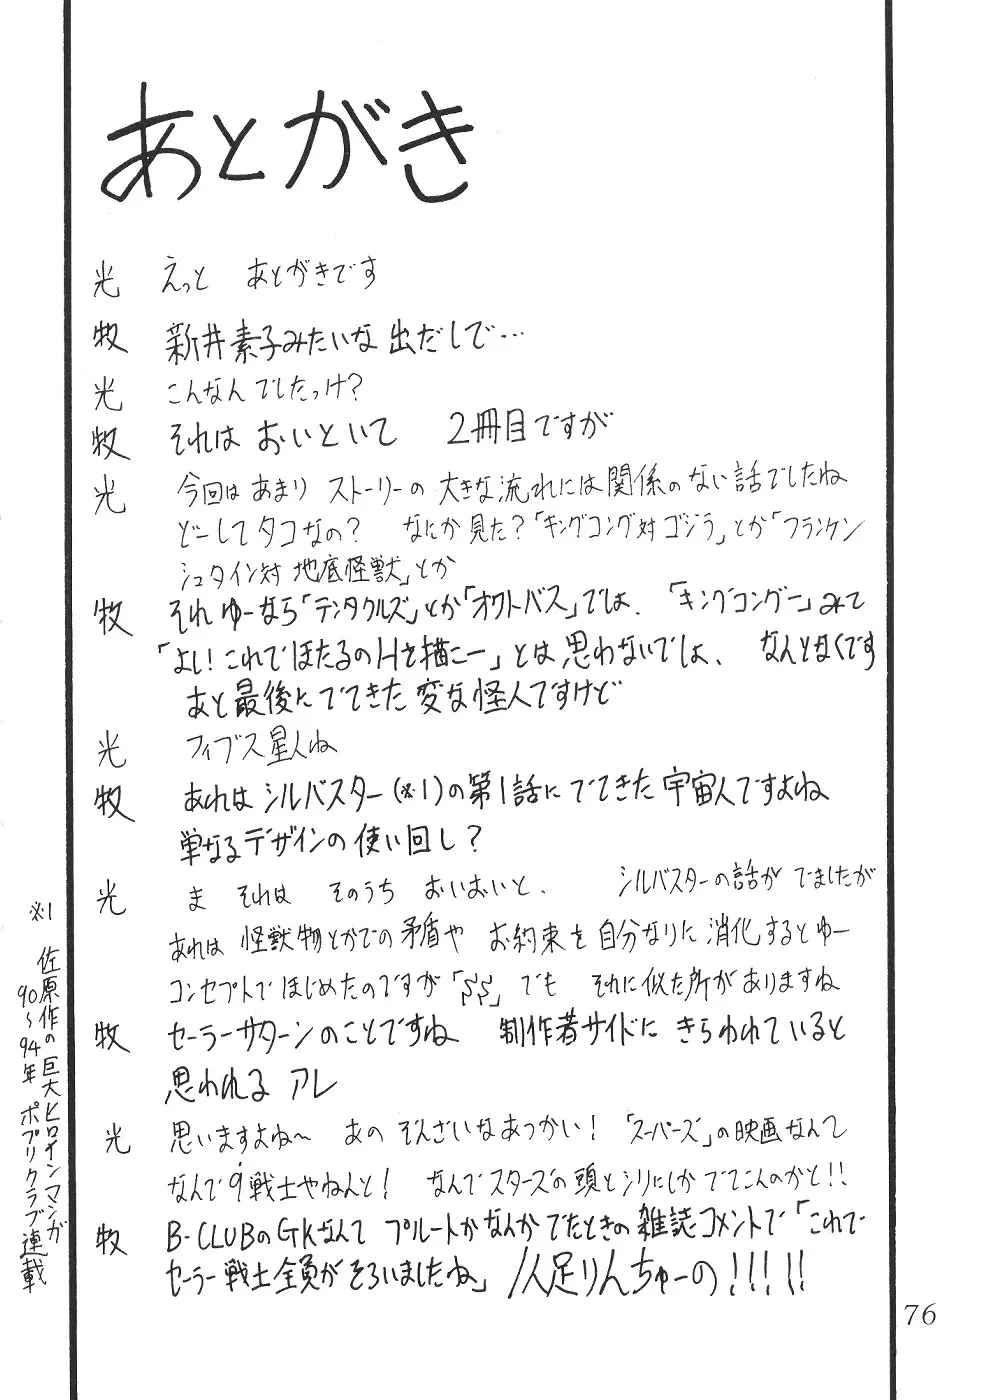 あとがき
光 えっと あとがきです
牧 新井素子みたいな出だしで…
光 こんなんでしたっけ?
牧 それは おいといて 2冊目ですが
光 今回は あまり ストーリーの 大きな流れには関係のない話でしたね
どーしてタコなの? なにか見た?「キングコング対ゴジラ」とか「フランケン
シュタイン対 地底怪獣」とか
牧 それ ゆーなら「テンタクルズ」とか「オクトパス」では、「キングコングー」みて
「よし!これでほたるのHを描こー」とは思わないでしょ、 なんとなくです
あと最後にでてきた変な怪人ですけど
光 フィブス星人ね
牧 あれは シルバスター(※1)の第1話にでてきた宇宙人ですよね
単なるデザインの使い回し?
光 ま それは そのうち おいおいと、 シルバスターの話が でましたが
あれは 怪獣物とかでの矛盾や お約束を自分なりに消化するとゆー
コンセプトではじめたのですが「SS」でも それに似た所がありますね
牧 セーラーサターンのことですね 制作者サイドに きらわれていると
思われる アレ
光 思いますよね〜 あの ぞんざいなあつかい!「スーパーズ」の映画なんて
なんで9戦士やねんと! なんでスターズの頭とシリにしかでてこんのかと!!
牧 B-CLUBのGKなんて プルートかなんかでたときの雑誌コメントで「これで
セーラー戦士全員がそろいましたね」1人足りんちゅーの!!!!!
※1 佐原作の巨大ヒロインマンガ
90〜94年 ポプリクラブ連載
76